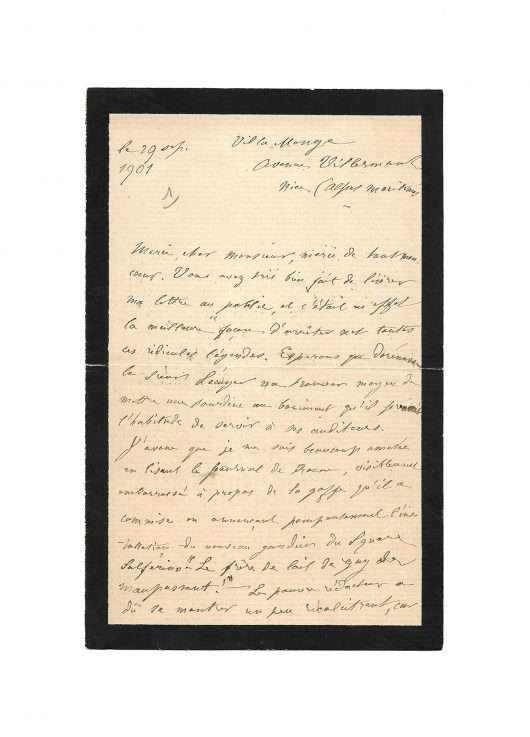 le 29 sep.
1901
Villa Monge
Avenue Villermont
Nice (alpes maritimes
1)
Merci, cher monsieur, merci de tout mon
cœur. Vous avez très bien fait de livrer
ma lettre au public, et c'était en effet
la meilleure façon d'arrêter net toutes
ces ridicules légendes. Espérons que dorénavant
le sieur va trouver moyen de
mettre une sourdine au boniment qu'il
l'habitude de servir à ses auditeurs.
J'avoue que je me suis beaucoup amusée
en lisant le journal de Rouen, visiblement
embarrassé à propos de la gaffe qu'il a
commise en annonçant pompeusement l'ins-
tallation du nouveau gardien du Square
Solférino "Le frère de lait de guy de
maupassant!" Le pauvre rédacteur a
dû se montrer un peu récalcitrant, car